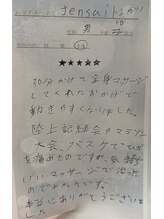 tensaiト
男
★★★★☆
30分かけて全身マッサージ
してくれたおかげで
動きやすくなりました。
陸上記録会やマラソン
大会、バスケでひざ
を痛めたのですが、気持ち
いいマッサージで治った
のでよかったです。
本当にありがとうございま
した